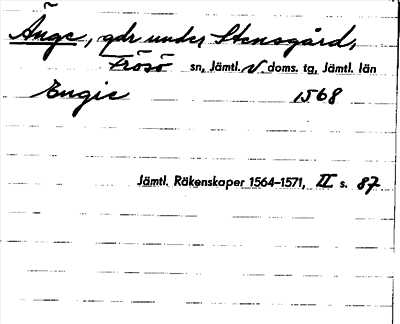 Änge, gdr under Stensgård,
Frösö sn, Jämtl. V doms. tg, Jämtl. län
Engie 1568
Jämtl. Räkenskaper 1564–1571, II s. 87